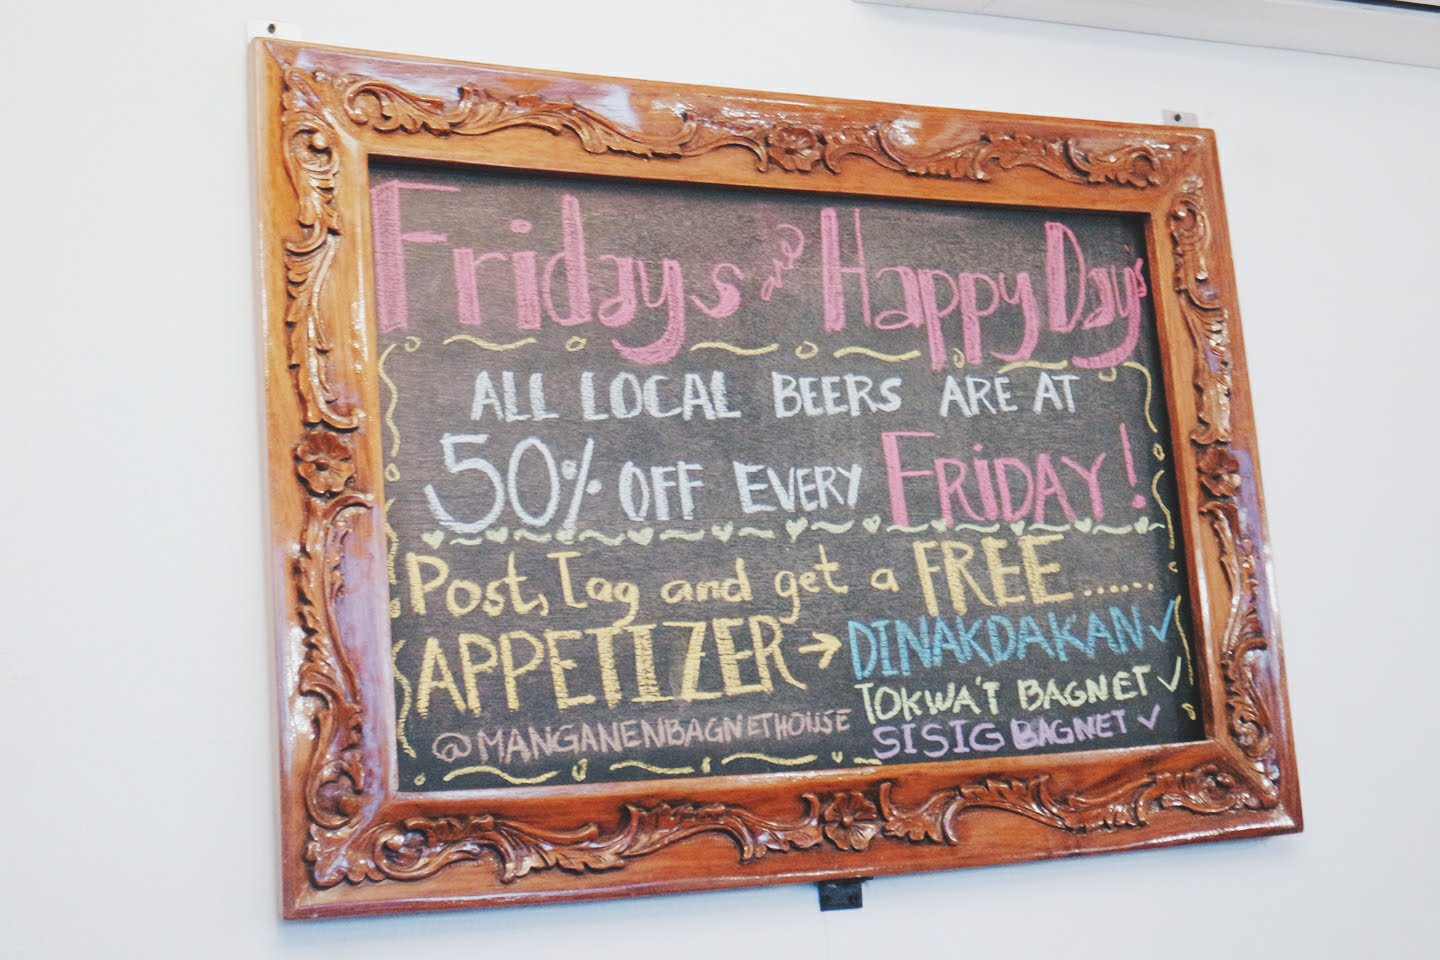 Fridays are Happy Day's
ALL LOCAL BEERS ARE AT
50% OFF EVERY FRiDAY!
Post, Tag and get a FREE......
APPETIZER → DINAKDAKAN ✓
TOKWA'T BAGNET ✓
@MANGANENBAGNETHOUSE
SISIG BAGNET ✓